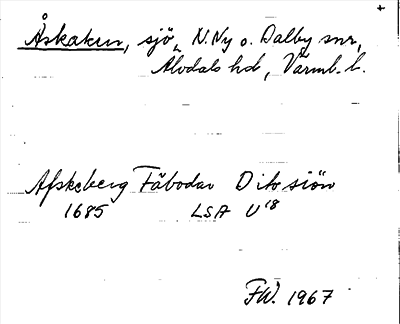 Åskaken, sjö, N. Ny o. Dalby snr,
Älvdals hd, Värml. l.
Afskeberg Fäbodar Dito siön
1685 LSA U18
FW. 1967